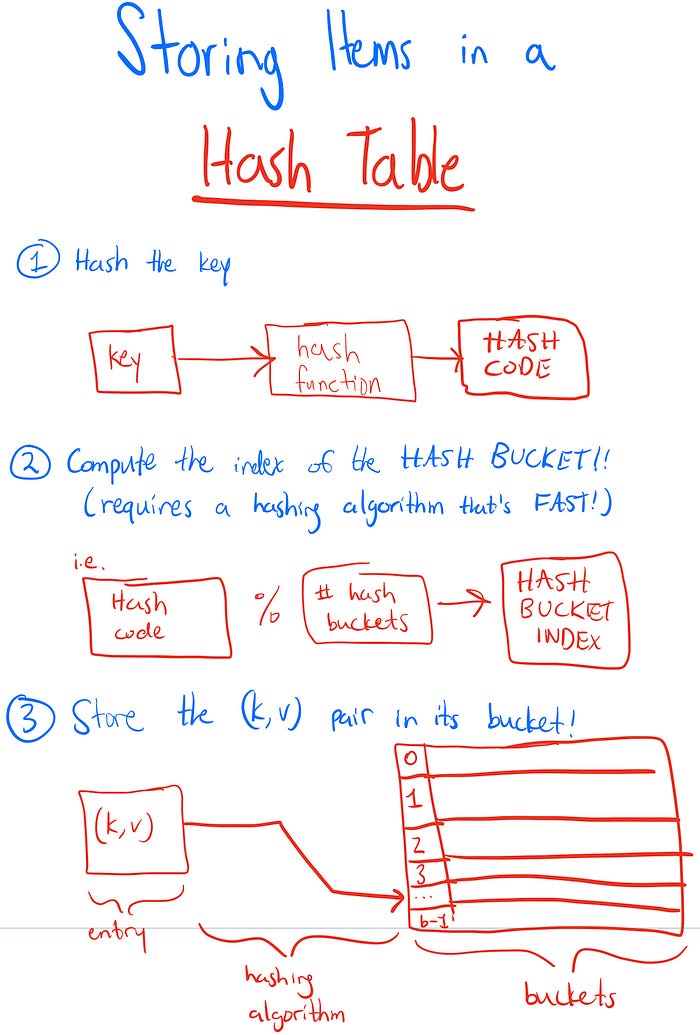 Storing Items in a
Hash Table
1 Hash the key
key
hash
function
HASH
CODE
2 Compute the index of the HASH BUCKET!!
(requires a hashing algorithm that's FAST!)
i.e.
Hash
code
%
# hash
buckets
HASH
BUCKET
INDEX
3 Store the (k,v) pair in its bucket!
(k,v)
0
1
2
3
...
b-1
entry
hashing
algorithm
buckets